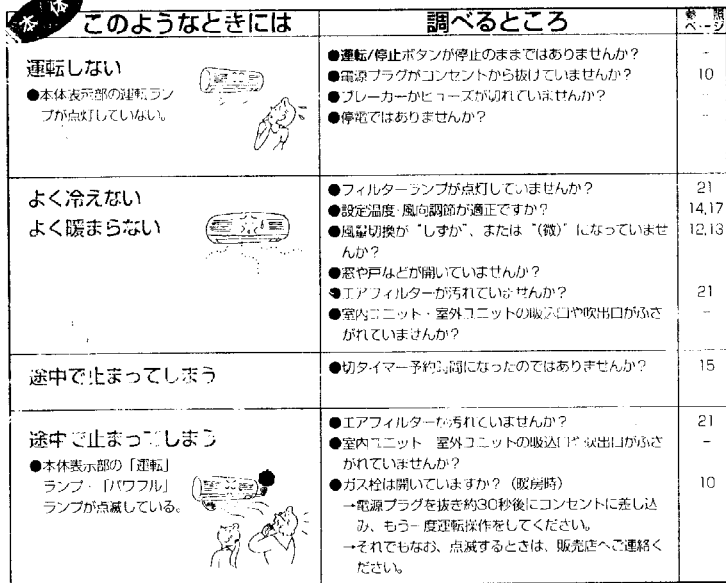 本体
このようなときには
調べるところ
参照
ページ
運転しない
●本体表示部の運転ラン
プが点灯していない。
●運転/停止ボタンが停止のままではありませんか？
-
●電源プラグがコンセントから抜けていませんか？
10
●ブレーカーかヒューズが切れていませんか？
-
●停電ではありませんか？
-
よく冷えない
よく暖まらない
●フィルターランプが点灯していませんか？
21
●設定温度・風向調節が適正ですか？
14,17
●風量切換が“しずか”、または“(微)”になっていませ
12,13
んか？
●窓や戸などが開いていませんか？
●エアフィルターが汚れていませんか？
21
●室内ユニット・室外ユニットの吸込口や吹出口がふさ
-
がれていませんか？
途中で止まってしまう
●切タイマー予約時間になったのではありませんか？
15
途中で止まってしまう
●本体表示部の「運転」
ランプ・「パワフル」
ランプが点滅している。
●エアフィルターが汚れていませんか？
21
●室内ユニット・室外ユニットの吸込口や吹出口がふさ
-
がれていませんか？
●ガス栓は開いていますか？（暖房時）
10
→電源プラグを抜き約30秒後にコンセントに差し込
み、もう一度運転操作をしてください。
→それでもなお、点滅するときは、販売店へご連絡く
ださい。